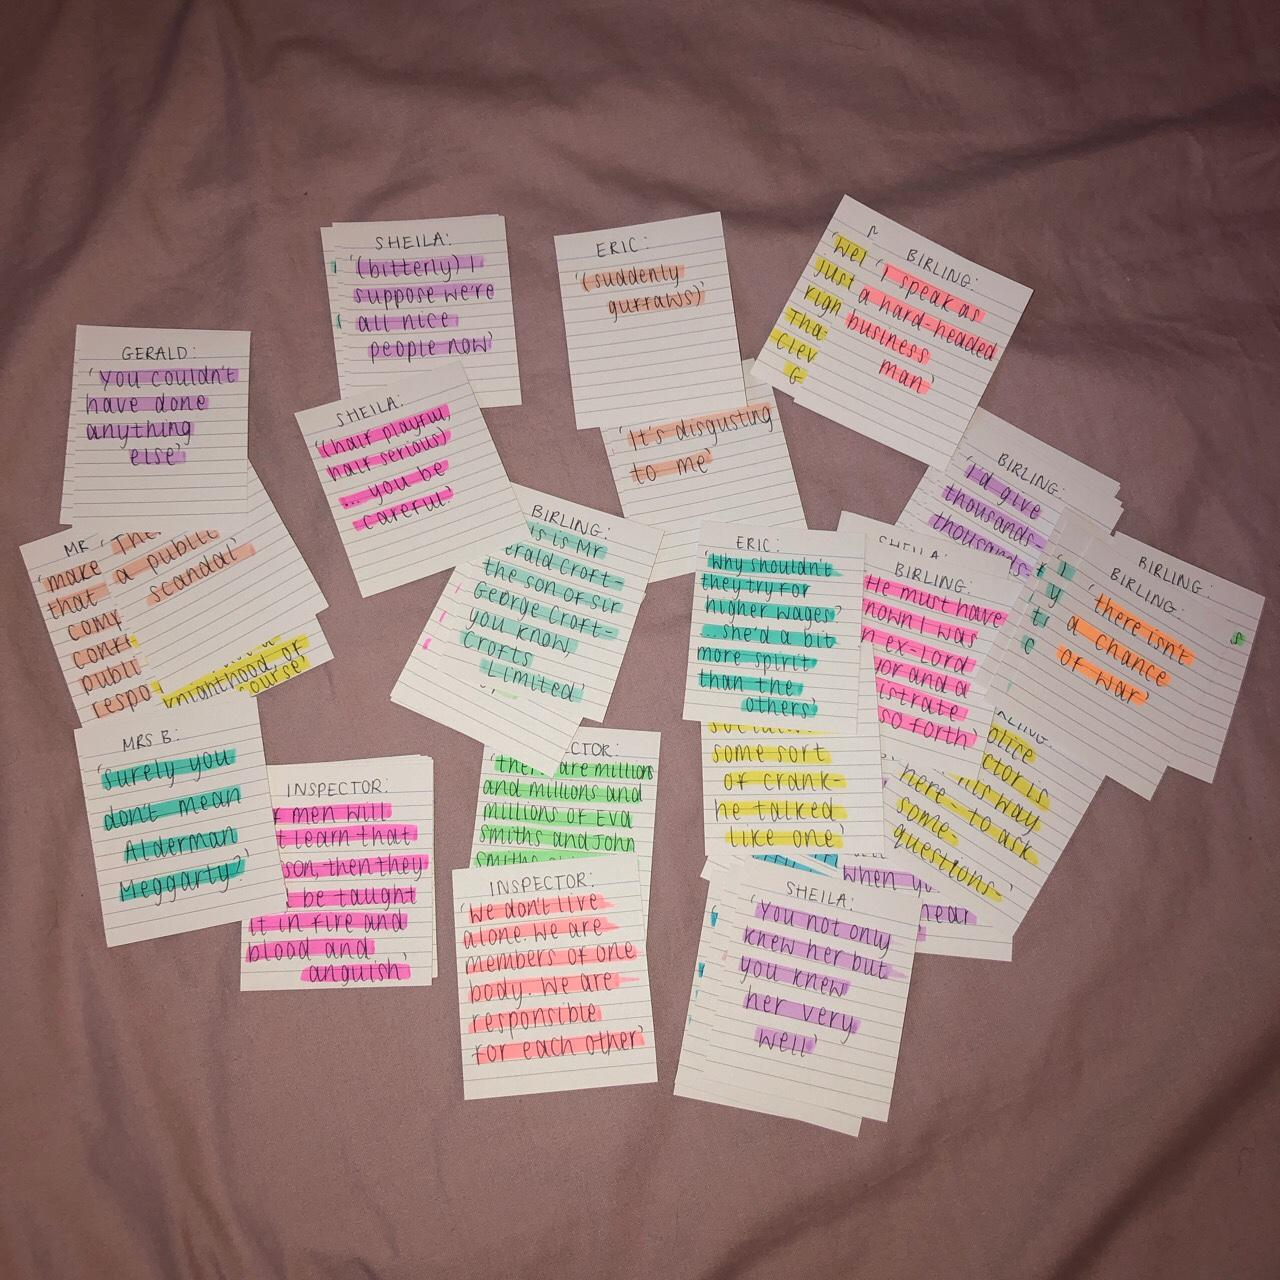 SHEILA:
'(bitterly) I
suppose we're
all nice
people now'
ERIC:
'(suddenly
guffaws)'
BIRLING:
'I speak as
a hard-headed
business
man'
'Wel
just
righ
Tha
clev
G
GERALD:
'You couldn't
have done
anything
else'
SHEILA:
'(half playful,
half serious)
... you be
careful.'
'It's disgusting
to me'
BIRLING:
'I'd give
thousands-
thousands-
MR
'make
that
comf
conf
publi
respo
'The
a public
scandal'
knighthood, of
course'
BIRLING:
is is Mr
erald Croft-
the son of Sir
George Croft-
you know,
Crofts
Limited'
ERIC:
'Why shouldn't
they try for
higher wages'
...she'd a bit
more spirit
than the
others'
SHEILA:
BIRLING:
He must have
nown I was
n ex-Lord
yor and a
istrate
so forth'
BIRLING:
BIRLING:
'there isn't
a chance
of war'
MRS B:
'surely you
don't mean
Alderman
Meggarty?'
INSPECTOR:
f men will
t learn that
son, then they
be taught
it in fire and
blood and
anguish'
CTOR:
'there are million
and millions and
millions of Eva
Smiths and John
Smiths
some sort
of crank-
he talked
like one'
olice
ctor is
is way
here - to ask
some
questions-'
when yo
near
INSPECTOR:
'We don't live
alone. We are
members of one
body. We are
responsible
for each other'
SHEILA:
'You not only
knew her but
you knew
her very
well'